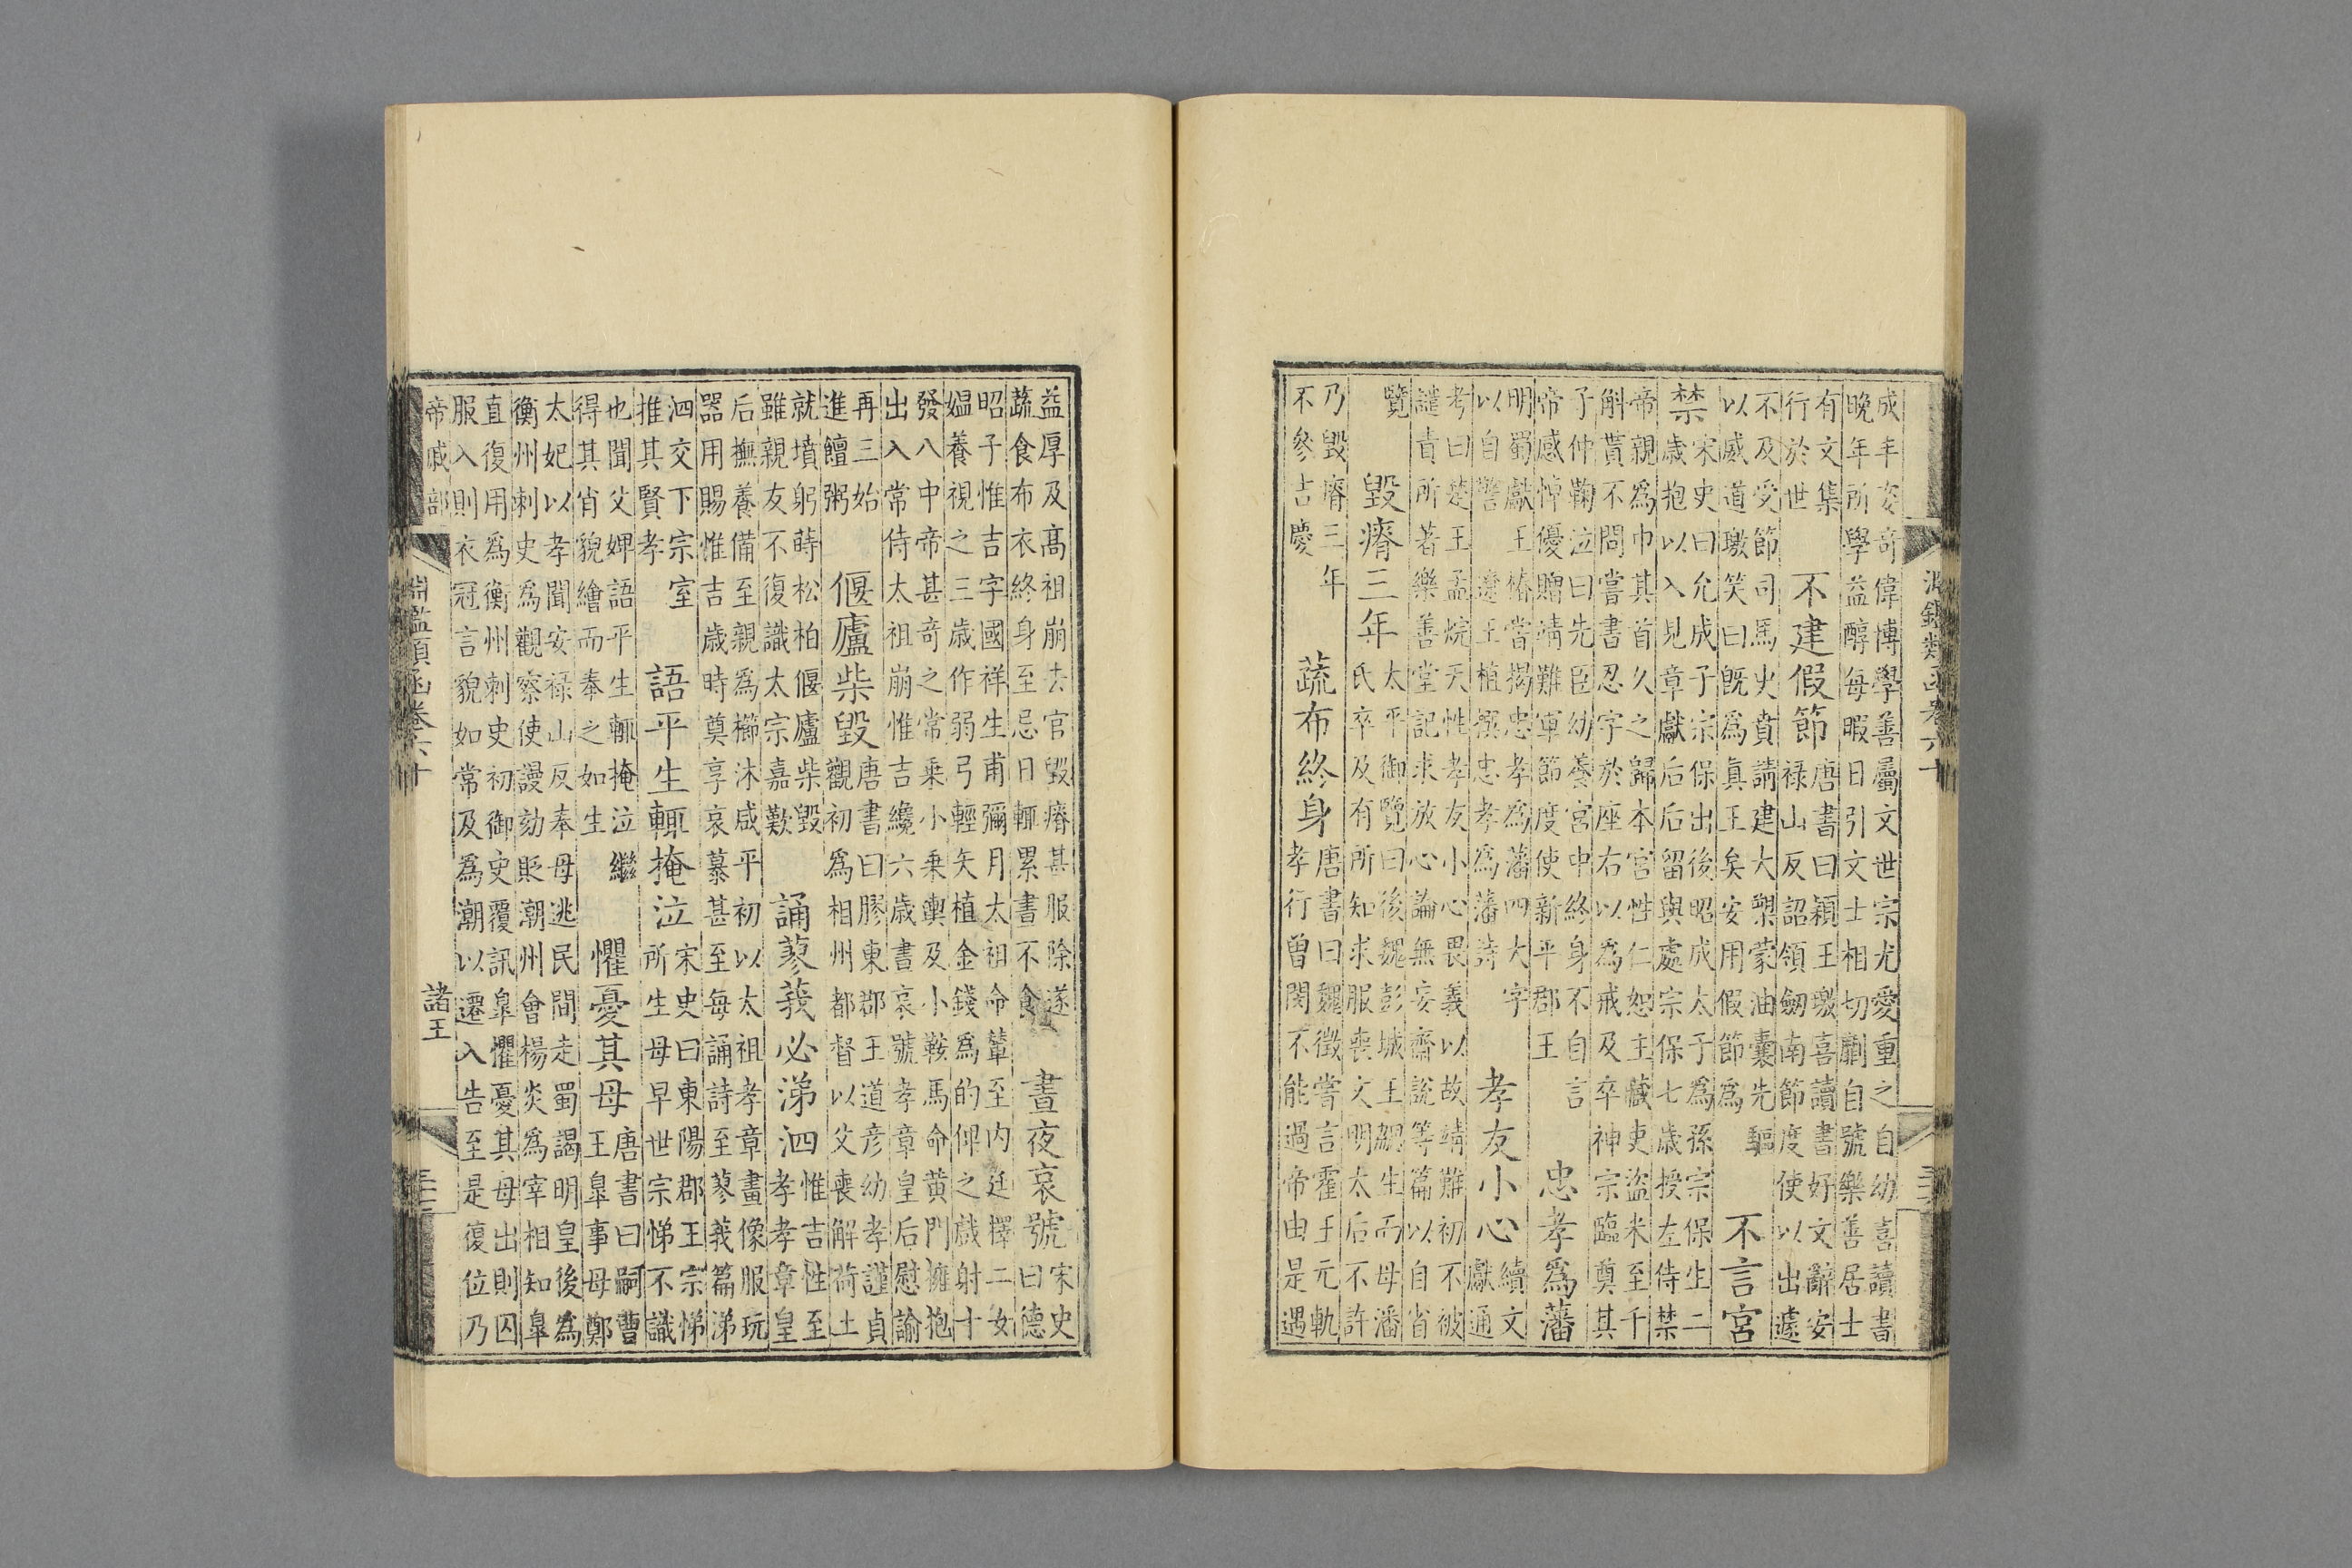 淵鑑類函卷六十
成丰姿奇偉博學善屬文世宗尤愛重之自幼喜讀書
晚年所學益醇每暇日引文士相切劘自號樂善居士
有文集
行於世
不建假節
唐書曰穎王璬喜讀書好文辭安
禄山反詔領劒南節度使以出遽
不及受節司馬史賁請建大槊蒙油囊先驅
以威道璬笑曰既爲真王矣安用假節爲
不言宮
禁
宋史曰允成子宗保出後昭成太子爲孫宗保生二
歲抱以入見章獻后后留與處宗保七歲授左侍禁
帝親爲巾其首久之歸本宮性仁恕主藏吏盜米至千
斛貰不問嘗書忍字於座右以爲戒及卒神宗臨奠其
子仲鞠泣曰先臣幼養宮中終身不自言
帝感悼優贈靖難軍節度使新平郡王
忠孝爲藩
明蜀獻王椿嘗揭忠孝爲藩四大字
以自警遼王植撰忠孝爲藩詩
孝友小心
續文
獻通
考曰楚王孟烷天性孝友小心畏義以故靖難初不被
譴責所著樂善堂記求放心論無妄齋説等篇以自省
覽
毀瘠三年
太平御覽曰後魏彭城王勰生而母潘
氏卒及有所知求服喪文明太后不許
乃毀瘠三年
不參吉慶
蔬布終身
唐書曰魏徵嘗言霍王元軌
孝行曾閔不能過帝由是遇
益厚及高祖崩去官毀瘠甚服除遂
蔬食布衣終身至忌日輒累晝不食
晝夜哀號
宋史
曰德
昭子惟吉字國祥生甫彌月太祖命輦至内廷擇二女
媼養視之三歲作弱弓輕矢植金錢爲的俾之戲射十
發八中帝甚奇之常乗小乗輿及小鞍馬命黃門擁抱
出入常侍太祖崩惟吉纔六歲晝哀號孝章皇后慰諭
再三始
進饘粥
偃廬柴毀
唐書曰膠東郡王道彥幼孝謹貞
觀初爲相州都督以父喪解荷土
就墳躬蒔松柏偃廬柴毀
雖親友不復識太宗嘉歎
誦蓼莪必涕泗
惟吉性至
孝孝章皇
后撫養備至親爲櫛沐咸平初以太祖孝章畫像服玩
器用賜惟吉歲時奠享哀慕甚至每誦詩至蓼莪篇涕
泗交下宗室
推其賢孝
語平生輒掩泣
宋史曰東陽郡王宗悌
所生母早世宗悌不識
也聞父婢語平生輒掩泣繼
得其肖貌繪而奉之如生
懼憂其母
唐書曰嗣曹
王皐事母鄭
太妃以孝聞安禄山反奉母逃民間走蜀謁明皇後爲
衡州刺史爲觀察使謾劾貶潮州會楊炎爲宰相知皐
直復用爲衡州刺史初御史覆訊皐懼憂其母出則囚
服入則衣冠言貌如常及爲潮以遷入告至是復位乃
帝戚部
淵鑑類函卷六十
諸王